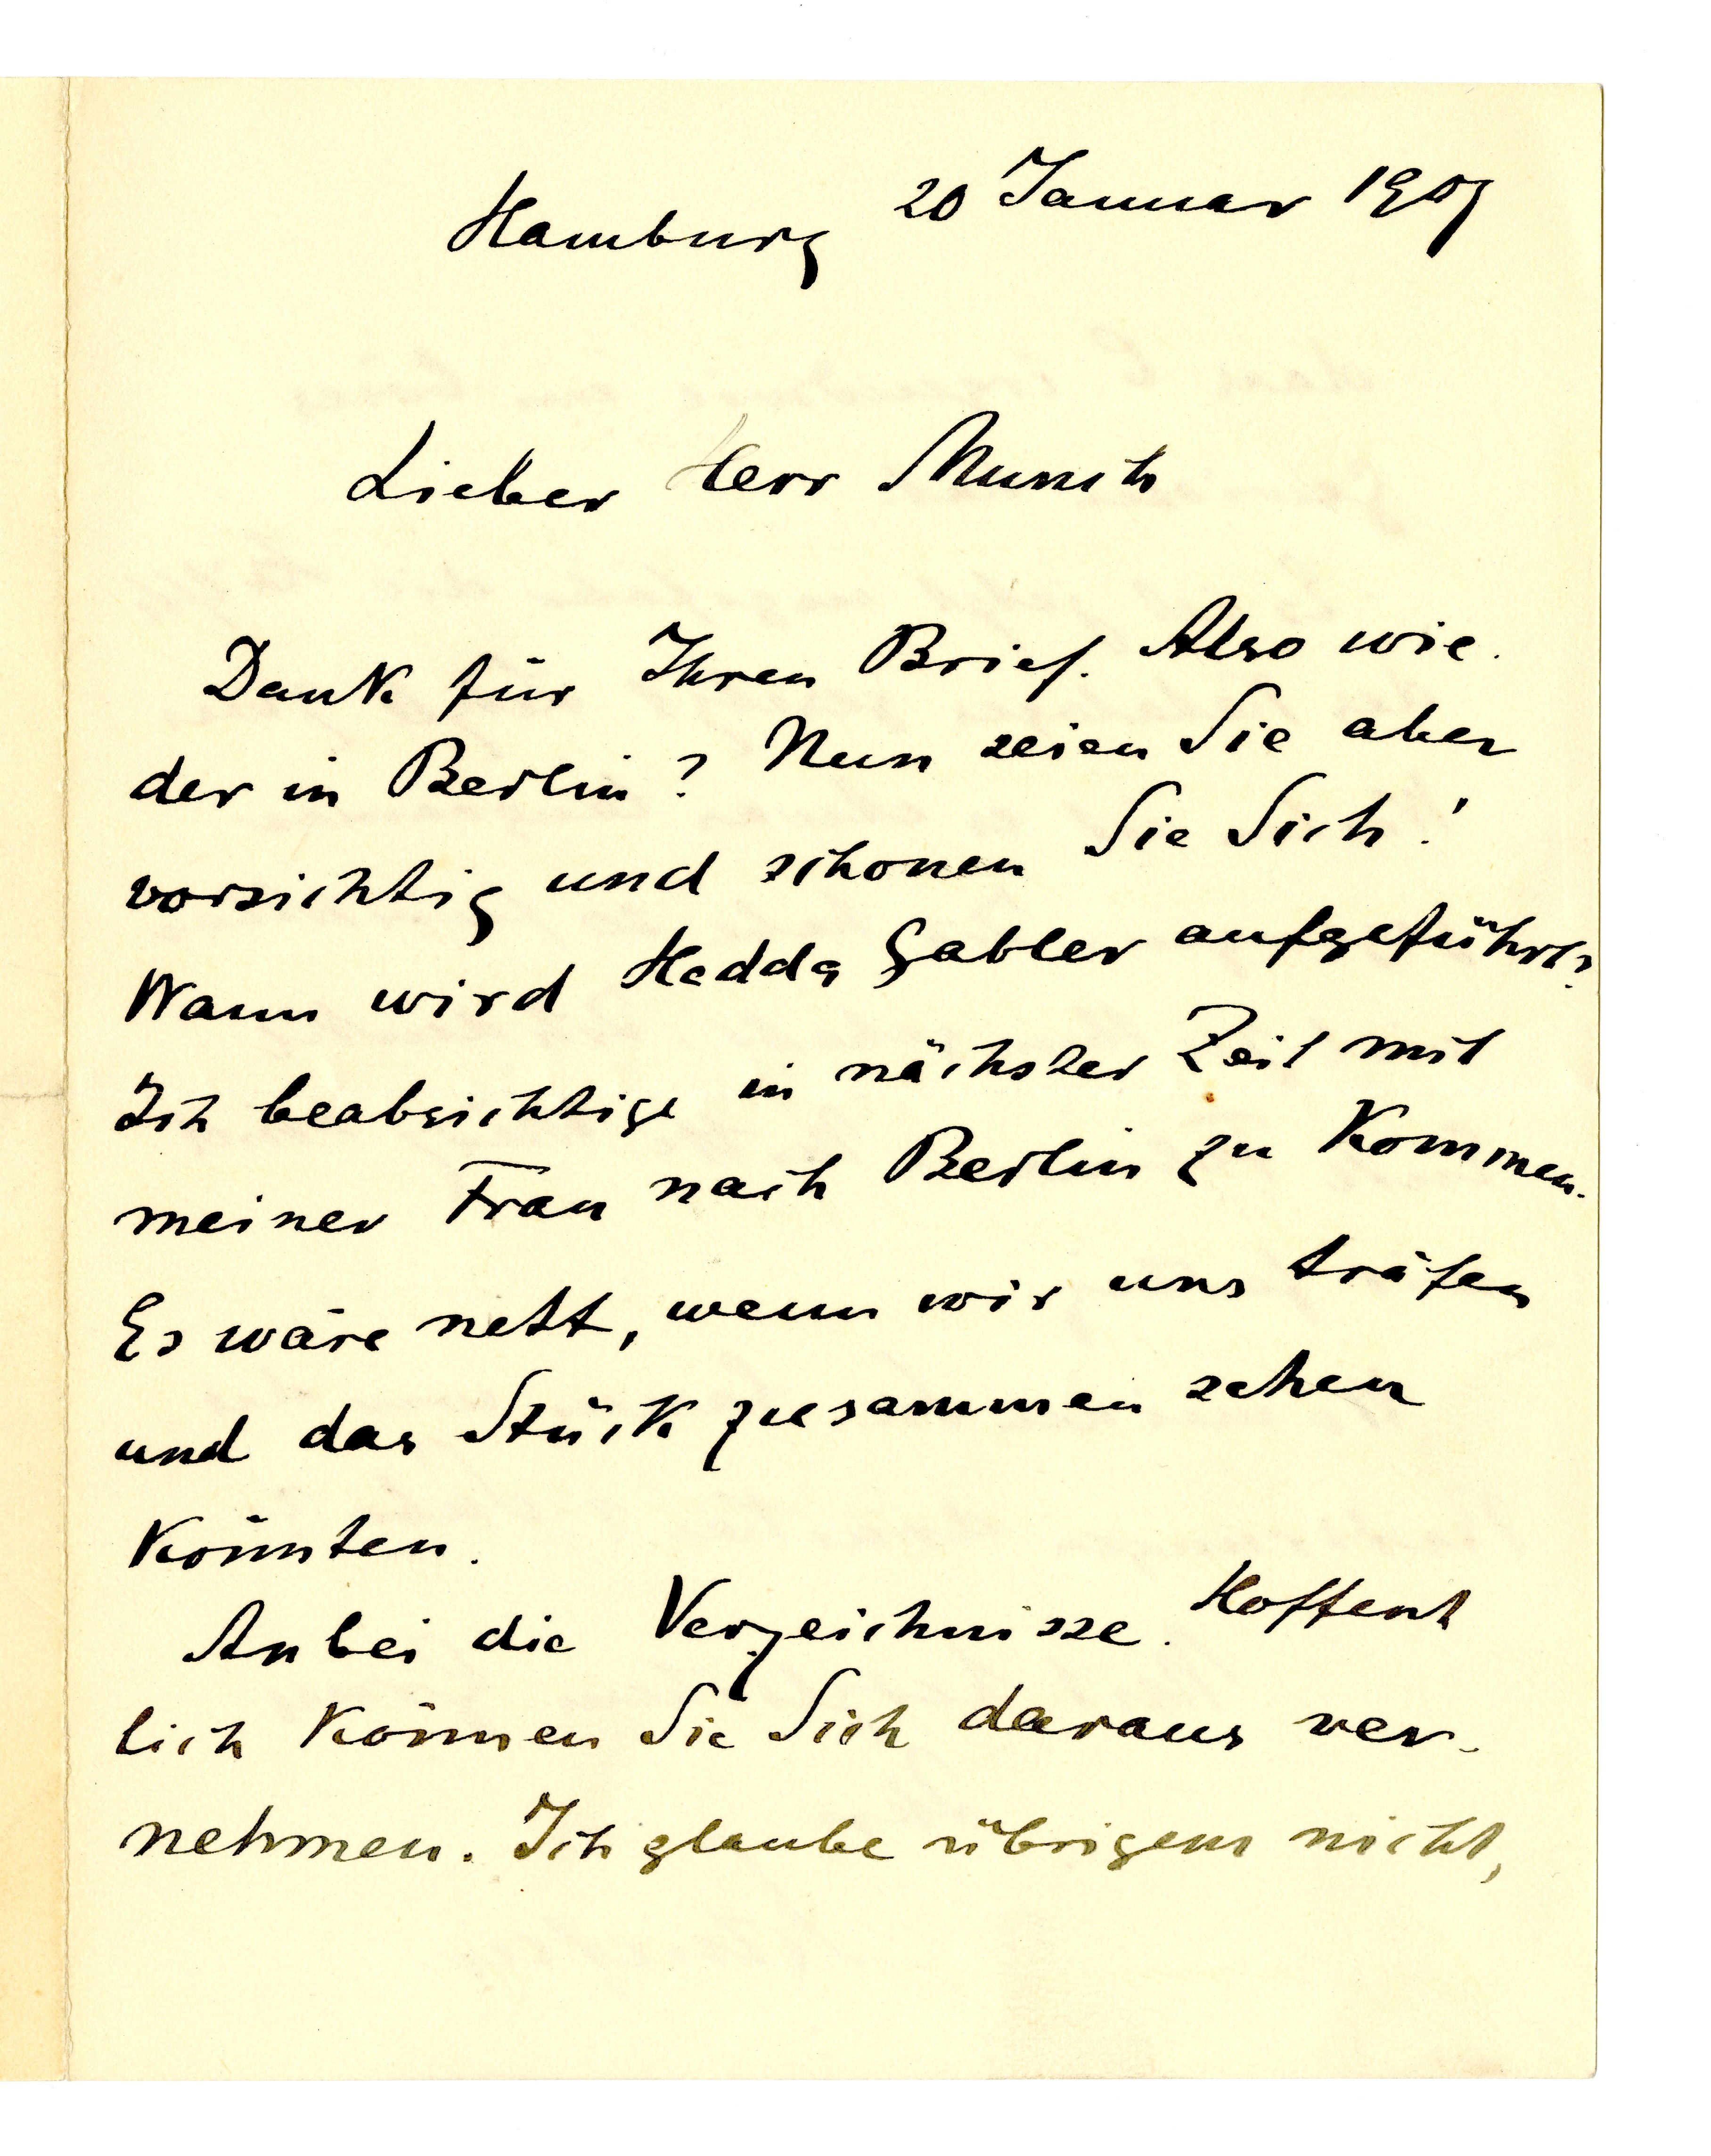 Hamburg 20 Januar 1907
Lieber Herr Munch
Dank für Ihren Brief. Also wie-
der in Berlin? Nun seien Sie aber
vorsichtig und schonen Sie Sich!
Wann wird Hedda Gabler aufgeführt?
Ich beabsichtige in nächster Zeit mit
meiner Frau nach Berlin zu kommen.
Es wäre nett, wenn wir uns träfen
und das Stück zusammen sehen
könnten.
Anbei die Verzeichnisse. Hoffent
lich können Sie Sich daraus ver-
nehmen. Ich glaube übrigens nicht,